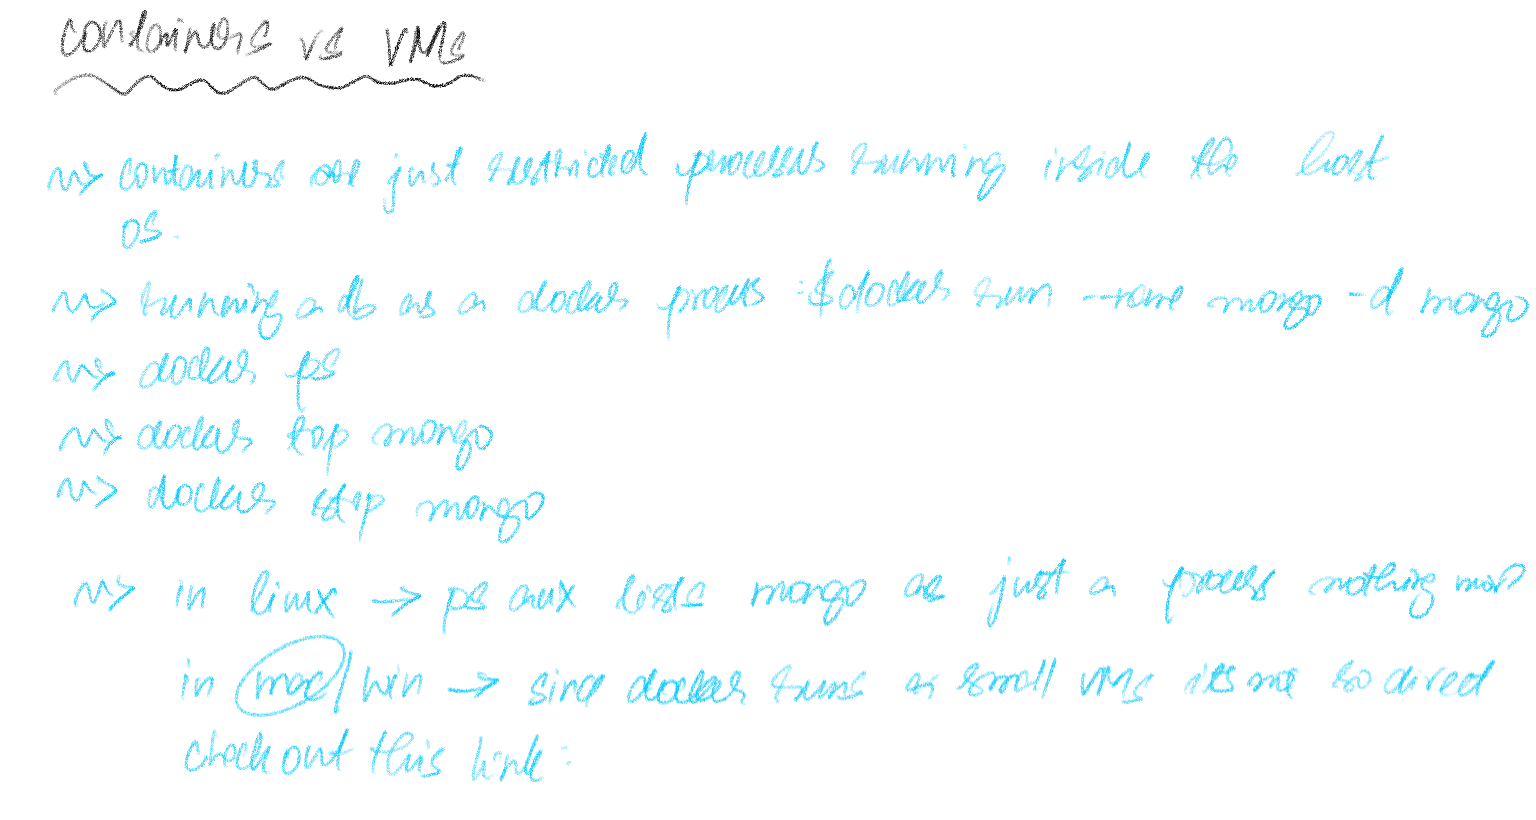 containers vs VMs
~> containers are just restricted processes running inside the host
OS.
~> running a db as a docker process : $docker run --name mongo -d mongo
~> docker ps
~> docker top mongo
~> docker stop mongo
~> in linux -> ps aux lists mongo as just a process nothing more
in mac/win -> since docker runs as small VMs its not so direct
check out this link: